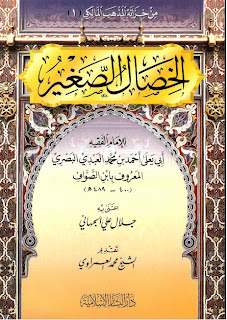 من خزانة المذهب المالكي (١)
الخصال الصغير
للإمام الفقيه
أبي يعلى أحمد بن محمد العبدي البصري
المعروف بابن الصواف
(٤٠٠ - ٤٨٩ هـ)
اعتنى به
جلال علي الجهاني
تقديم
الشيخ محمد العمراوي
دار النشر الإسلامية